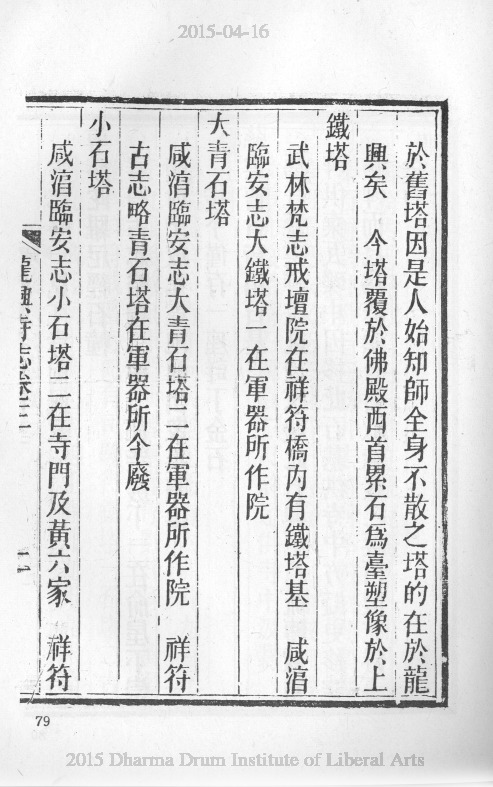 2015-04-16
於舊塔因是人始知師全身不散之塔的在於龍
興矣　今塔覆於佛殿西首累石爲臺塑像於上
鐵塔
武林梵志戒壇院在祥符橋內有鐵塔基　咸湻
臨安志大鐵塔一在軍器所作院
大青石塔
咸湻臨安志大青石塔二在軍器所作院　祥符
古志略青石塔在軍器所今廢
小石塔
咸湻臨安志小石塔二在寺門及黃六家　祥符
龍興寺志卷二
79
2015 Dharma Drum Institute of Liberal Arts